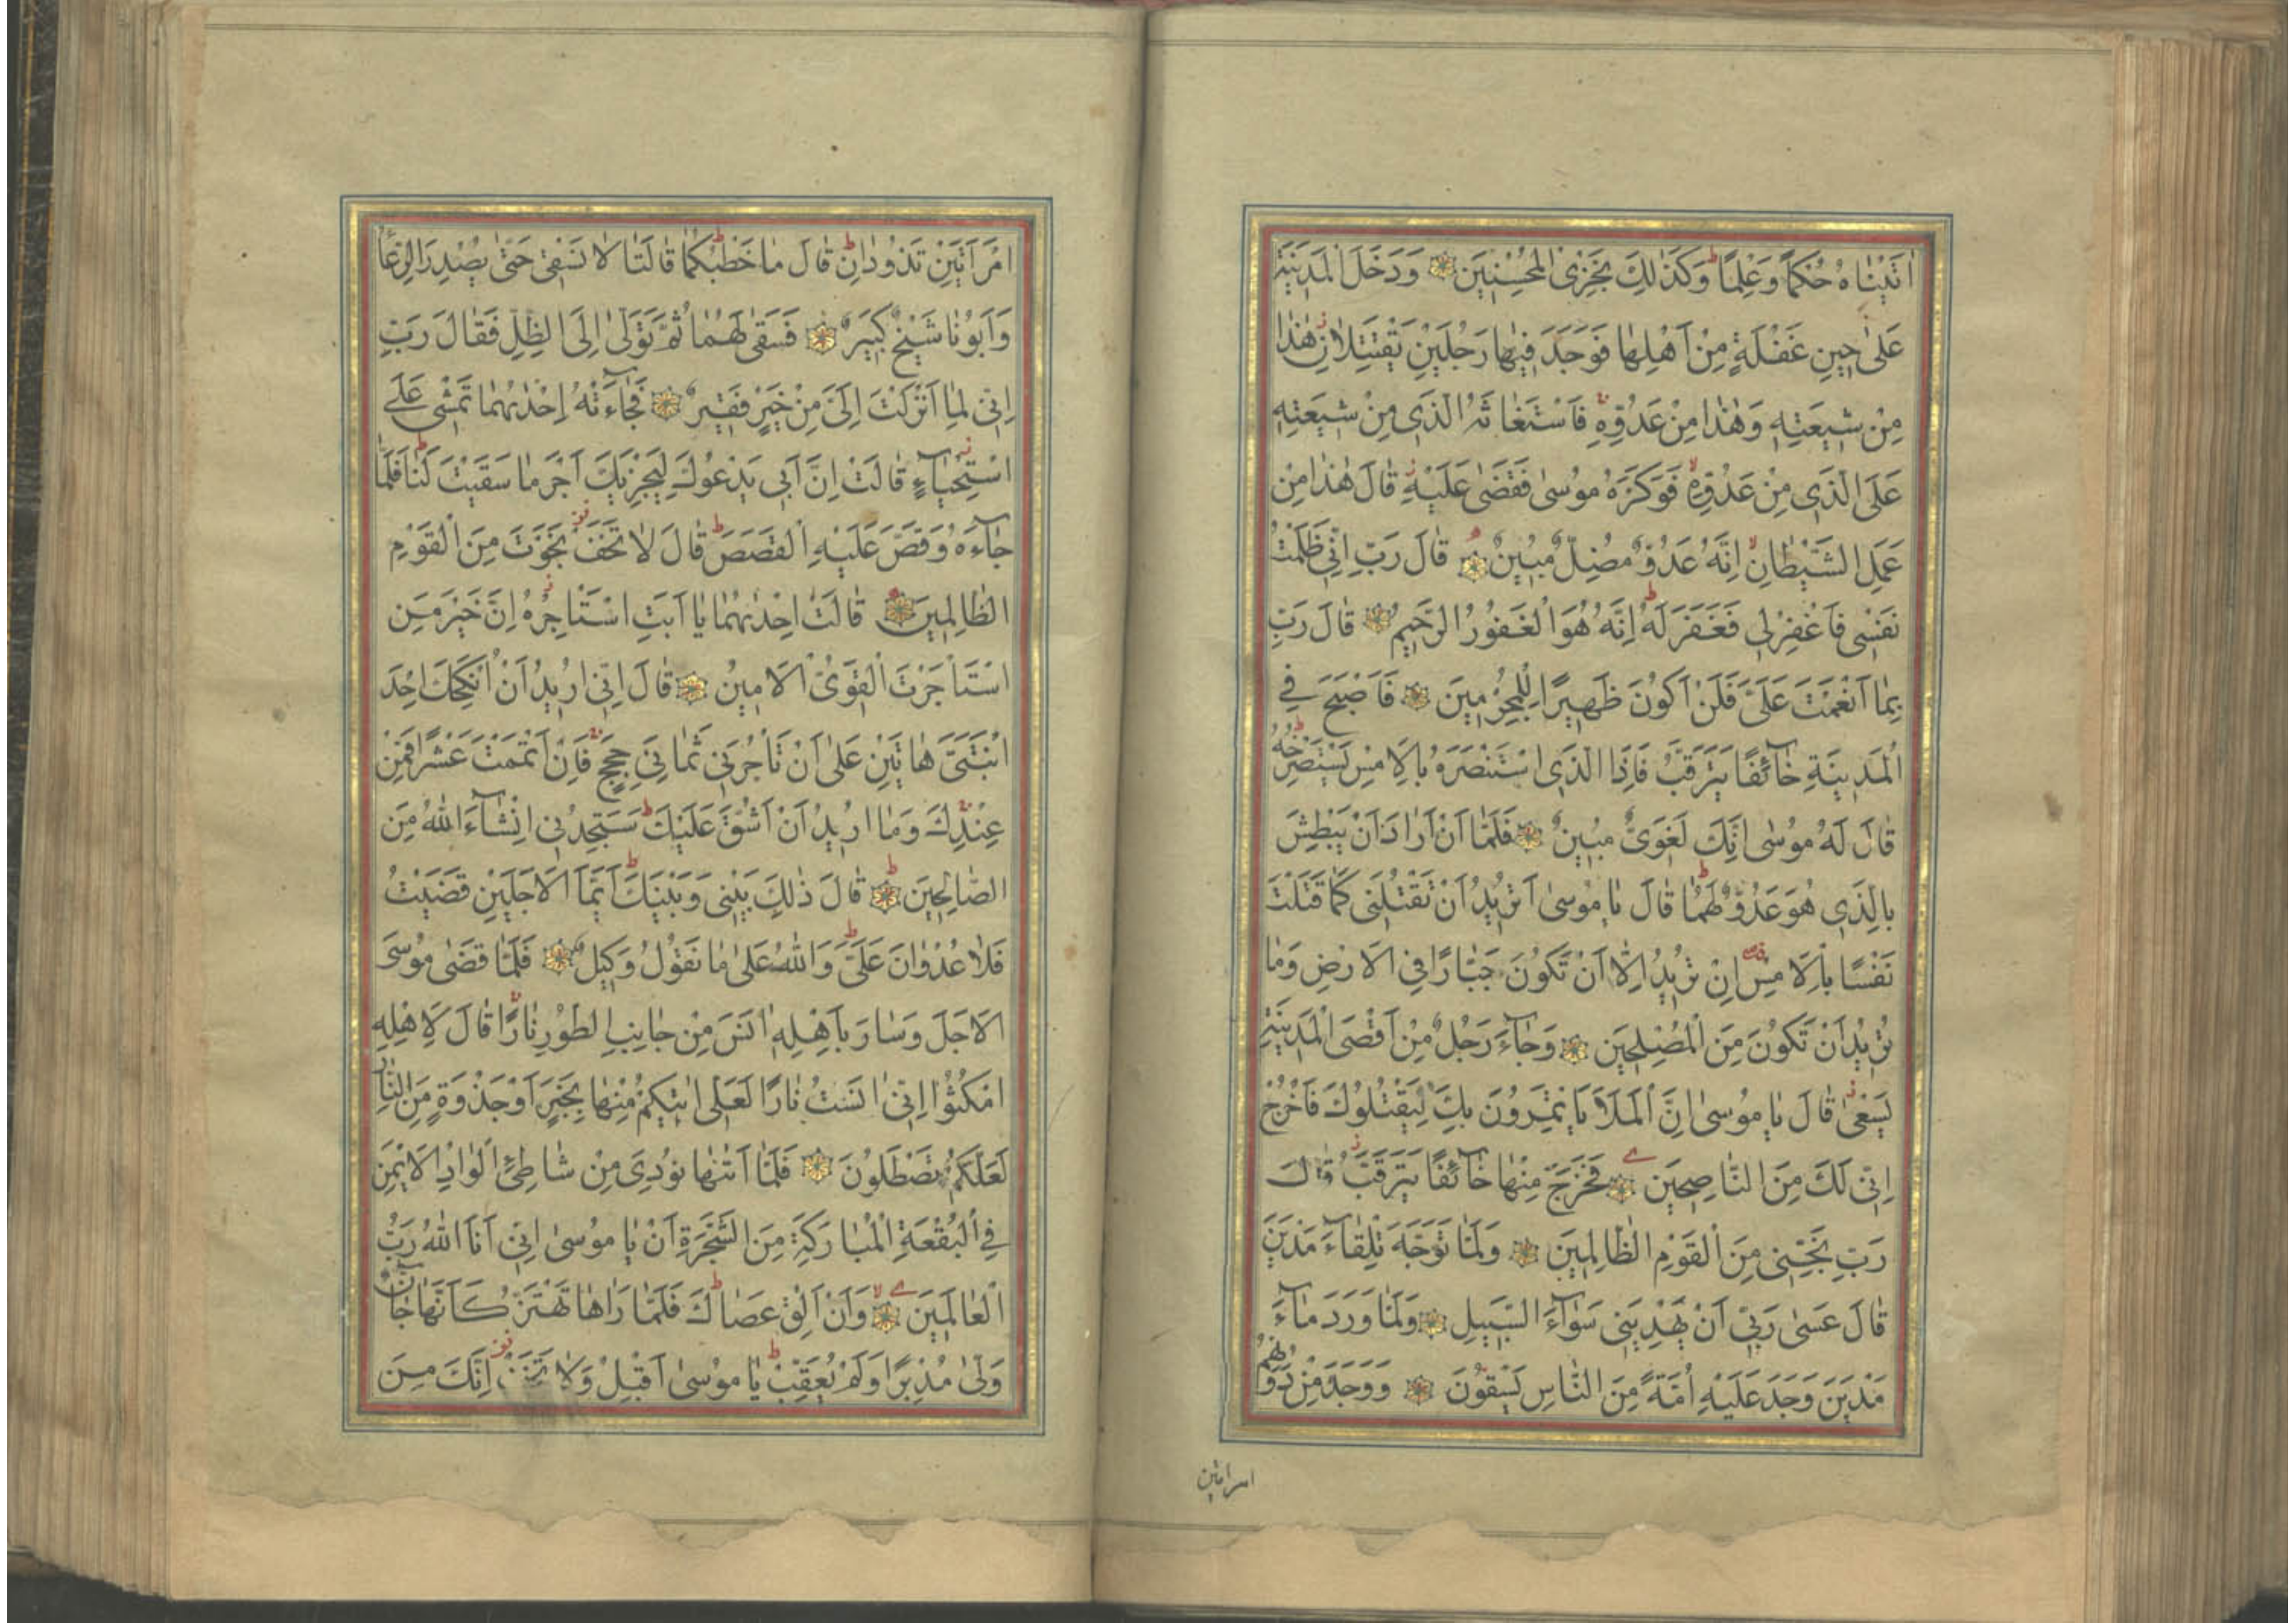 اٰتَيْنٰاهُ حُكْمًا وَعِلْمًا ط وَكَذٰلِكَ نَجْزِى الْمُحْسِنِينَ وَدَخَلَ الْمَدِينَةَ
عَلىٰ حِينِ غَفْلَةٍ مِنْ اَهْلِهٰا فَوَجَدَ فِيهٰا رَجُلَيْنِ يَقْتَتِلاٰنِ ز هٰذٰا
مِنْ شِيعَتِهِ وَهٰذٰا مِنْ عَدُوِّهِ فَاسْتَغٰاثَهُ الَّذِى مِنْ شِيعَتِهِ
عَلَى الَّذِى مِنْ عَدُوِّهِ لا فَوَكَزَهُ مُوسىٰ فَقَضىٰ عَلَيْهِ ز قٰالَ هٰذٰا مِنْ
عَمَلِ الشَّيْطٰانِ لا اِنَّهُ عَدُوٌّ مُضِلٌّ مُبِينٌ قٰالَ رَبِّ اِنِّى ظَلَمْتُ
نَفْسِى فَاغْفِرْلِى فَغَفَرَ لَهُ ط اِنَّهُ هُوَ الْغَفُورُ الرَّحِيمُ قٰالَ رَبِّ
بِمٰا اَنْعَمْتَ عَلَىَّ فَلَنْ اَكُونَ ظَهِيرًا لِلْمُجْرِمِينَ فَاَصْبَحَ فِى
الْمَدِينَةِ خٰآئِفًا يَتَرَقَّبُ فَاِذَا الَّذِى اسْتَنْصَرَهُ بِالْاَمْسِ يَسْتَصْرِخُهُ ط
قٰالَ لَهُ مُوسٰى اِنَّكَ لَغَوِىٌّ مُبِينٌ فَلَمّٰا اَنْ اَرٰادَ اَنْ يَبْطِشَ
بِالَّذِى هُوَ عَدُوٌّ لَهُمٰا ط قٰالَ يٰا مُوسىٰ اَتُرِيدُ اَنْ تَقْتُلَنِى كَمٰا قَتَلْتَ
نَفْسًا بِالْاَمْسِ اِنْ تُرِيدُ اِلّٰا اَنْ تَكُونَ جَبّٰارًا فِى الْاَرْضِ وَمٰا
تُرِيدُ اَنْ تَكُونَ مِنَ الْمُصْلِحِينَ وَجٰآءَ رَجُلٌ مِنْ اَقْصَى الْمَدِينَةِ
يَسْعىٰ ز قٰالَ يٰا مُوسىٰ اِنَّ الْمَلَاَ يَاْتَمِرُونَ بِكَ لِيَقْتُلُوكَ فَاخْرُجْ
اِنِّى لَكَ مِنَ النّٰاصِحِينَ فَخَرَجَ مِنْهٰا خٰآئِفًا يَتَرَقَّبُ ز قٰالَ
رَبِّ نَجِّنِى مِنَ الْقَوْمِ الظّٰالِمِينَ وَلَمّٰا تَوَجَّهَ تِلْقٰآءَ مَدْيَنَ
قٰالَ عَسٰى رَبِّى اَنْ يَهْدِيَنِى سَوٰآءَ السَّبِيلِ وَلَمّٰا وَرَدَ مٰآءَ
مَدْيَنَ وَجَدَ عَلَيْهِ اُمَّةً مِنَ النّٰاسِ يَسْقُونَ وَوَجَدَ مِنْ دُونِهِمُ
امراتين
امْرَاَتَيْنِ تَذُودٰانِ ط قٰالَ مٰا خَطْبُكُمٰا ط قٰالَتٰا لاٰ نَسْقِى حَتّىٰ يُصْدِرَ الرِّعٰآءُ
وَاَبُونٰا شَيْخٌ كَبِيرٌ فَسَقىٰ لَهُمٰا ثُمَّ تَوَلّىٰ اِلَى الظِّلِّ فَقٰالَ رَبِّ
اِنِّى لِمٰا اَنْزَلْتَ اِلَىَّ مِنْ خَيْرٍ فَقِيرٌ فَجٰآءَتْهُ اِحْدٰيهُمٰا تَمْشِى عَلَى
اسْتِحْيٰآءٍ ز قٰالَتْ اِنَّ اَبِى يَدْعُوكَ لِيَجْزِيَكَ اَجْرَ مٰا سَقَيْتَ لَنٰا ط فَلَمّٰا
جٰآءَهُ وَقَصَّ عَلَيْهِ الْقَصَصَ ط قٰالَ لاٰ تَخَفْ نَجَوْتَ مِنَ الْقَوْمِ
الظّٰالِمِينَ قٰالَتْ اِحْدٰيهُمٰا يٰا اَبَتِ اسْتَاْجِرْهُ ز اِنَّ خَيْرَ مَنِ
اسْتَاْجَرْتَ الْقَوِىُّ الْاَمِينُ قٰالَ اِنِّى اُرِيدُ اَنْ اُنْكِحَكَ اِحْدَى
ابْنَتَىَّ هٰاتَيْنِ عَلىٰ اَنْ تَاْجُرَنِى ثَمٰانِىَ حِجَجٍ فَاِنْ اَتْمَمْتَ عَشْرًا فَمِنْ
عِنْدِكَ وَمٰا اُرِيدُ اَنْ اَشُقَّ عَلَيْكَ ط سَتَجِدُنِى اِنْشٰآءَ اللّٰهُ مِنَ
الصّٰالِحِينَ قٰالَ ذٰلِكَ بَيْنِى وَبَيْنَكَ ط اَيَّمَا الْاَجَلَيْنِ قَضَيْتُ
فَلاٰ عُدْوٰانَ عَلَىَّ ط وَاللّٰهُ عَلىٰ مٰا نَقُولُ وَكِيلٌ فَلَمّٰا قَضٰى مُوسَى
الْاَجَلَ وَسٰارَ بِاَهْلِهِ اٰنَسَ مِنْ جٰانِبِ الطُّورِ نٰارًا قٰالَ لِاَهْلِهِ
امْكُثُوا اِنِّى اٰنَسْتُ نٰارًا لَعَلِّى اٰتِيكُمْ مِنْهٰا بِخَبَرٍ اَوْ جَذْوَةٍ مِنَ النّٰارِ
لَعَلَّكُمْ تَصْطَلُونَ فَلَمّٰا اَتٰيهٰا نُودِىَ مِنْ شٰاطِئِ الْوٰادِ الْاَيْمَنِ
فِى الْبُقْعَةِ الْمُبٰارَكَةِ مِنَ الشَّجَرَةِ اَنْ يٰا مُوسىٰ اِنِّى اَنَا اللّٰهُ رَبُّ
الْعٰالَمِينَ وَاَنْ اَلْقِ عَصٰاكَ ط فَلَمّٰا رَاٰهٰا تَهْتَزُّ كَاَنَّهٰا جٰآنٌّ
وَلّىٰ مُدْبِرًا وَلَمْ يُعَقِّبْ ط يٰا مُوسىٰ اَقْبِلْ وَلاٰ تَخَفْ اِنَّكَ مِنَ